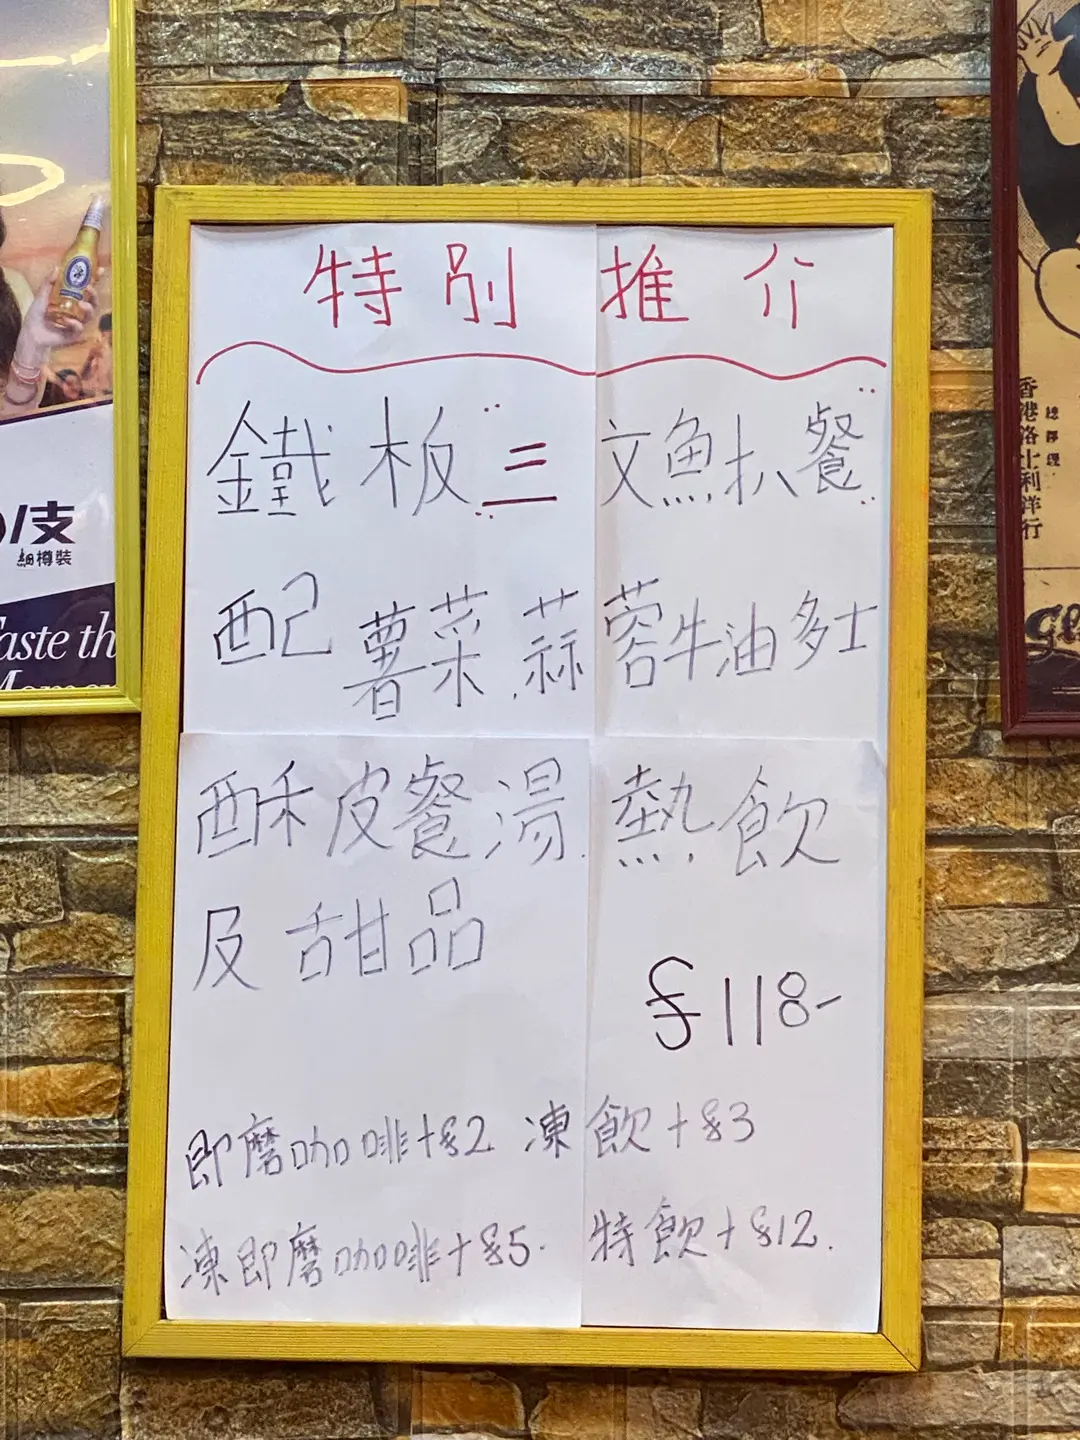 特別推介
鐵板三文魚扒餐
配薯菜.蒜蓉牛油多士
酥皮餐湯.熱飲
及甜品
$118-
即磨咖啡+$2 凍飲+$3
凍即磨咖啡+$5. 特飲+$12.
/支
細樽裝
aste th
香港洛士利洋行
總經理